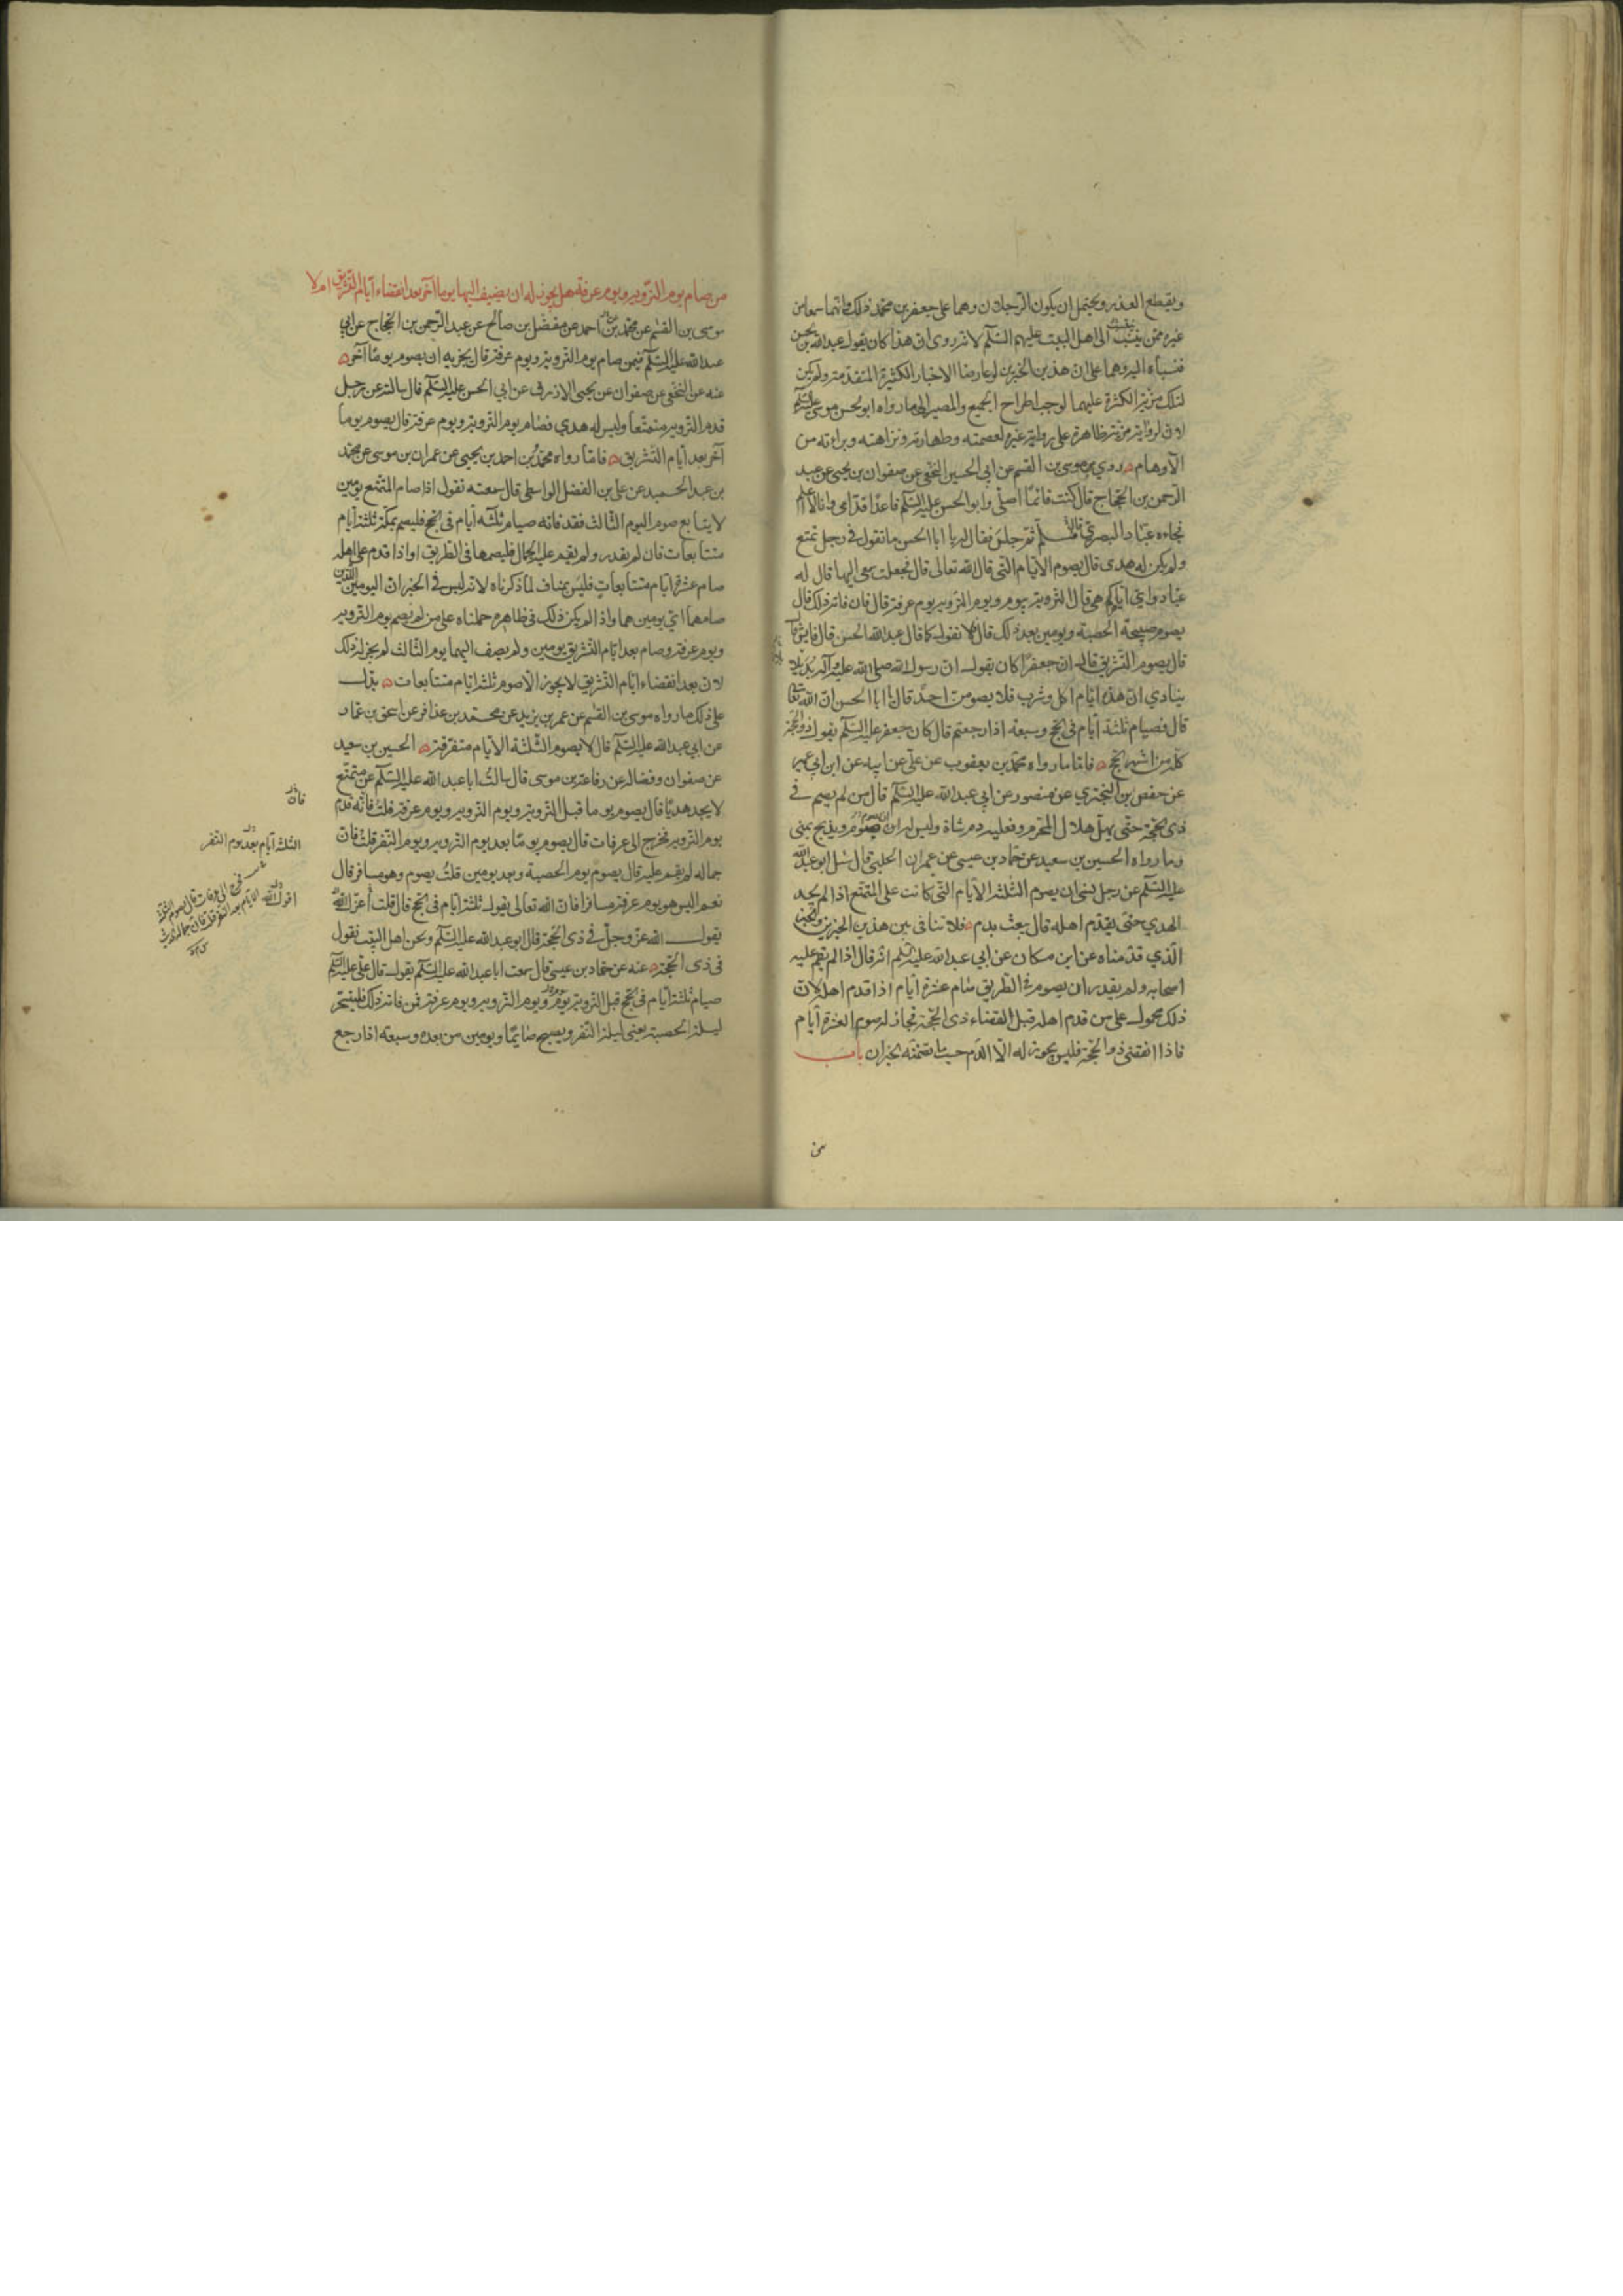 ويقطع العذر ويحتمل ان يكون الرجلان وهما على جعفر بن محمد ذلك وانهما سمعا من
غيره ممن ينسب الى اهل البيت عليهم السلم لانه روى ان هذا كان يقول عبد الله بن الحسن
فنسباه اليه وهما على ان هذين الخبرين لو عارضا الاخبار الكثيرة المتقدمة ولم يكن
لتلك مزية الكثرة عليهما لوجب اطراح الجميع والمصير الى ما رواه ابو الحسن موسى عليه السلم
لان لروايته مزية ظاهرة على رواية غيره لعصمته وطهارته ونزاهته وبراءته من
الاوهام روى موسى بن القسم عن ابي الحسين النخعي عن صفوان بن يحيى عن عبد
الرحمن بن الحجاج قال كنت قائما اصلي وابو الحسن عليه السلم قاعدا قدامي وانا لا اعلم
فجاءه عباد البصري قال فسلم ثم جلس فقال له يا ابا الحسن ما تقول في رجل تمتع
ولم يكن له هدى قال يصوم الايام التي قال الله تعالى قال فجعلت سمعي اليهما قال له
عباد واي ايام هي قال قبل التروية بيوم ويوم التروية ويوم عرفة قال فان فاته ذلك قال
يصوم صبيحة الحصبة ويومين بعد ذلك قال افلا تقول كما قال عبد الله بن الحسن قال فايش قال
قال يصوم التشريق قال ان جعفرا كان يقول ان رسول الله صلى الله عليه وآله امر بديلا
ينادي ان هذه ايام اكل وشرب فلا يصومن احد قال يا ابا الحسن ان الله تعالى
قال فصيام ثلثة ايام في الحج وسبعة اذا رجعتم قال كان جعفر عليه السلم يقول ذو الحجة
كله من اشهر الحج فاما ما رواه محمد بن يعقوب عن علي عن ابيه عن ابن ابي عمير
عن حفص بن البختري عن منصور عن ابي عبد الله عليه السلم قال من لم يصم في
ذي الحجة حتى يهل هلال المحرم فعليه دم شاة وليس له ان يصوم ويذبح بمنى
وما رواه الحسين بن سعيد عن حماد بن عيسى عن عمران الحلبي قال سئل ابو عبد الله
عليه السلم عن رجل نسي ان يصوم الثلثة الايام التي كانت على المتمتع اذا لم يجد
الهدي حتى يقدم اهله قال يبعث بدم فلا تنافى بين هذين الخبرين والخبر
الذي قدمناه عن ابن مسكان عن ابي عبد الله عليه السلم انه قال اذا لم يقم عليه
اصحابه ولم يقدر ان يصوم في الطريق صام عشرة ايام اذا قدم اهله لان
ذلك محمول على من قدم اهله قبل انقضاء ذي الحجة فجاز له صوم العشرة ايام
فاذا انقضى ذو الحجة فليس يجوز له الا الدم حسب ما تضمنه الخبران باب
من
من صام يوم التروية ويوم عرفة هل يجوز له ان يضيف اليها يوما آخر بعد انقضاء ايام التشريق ام لا
موسى بن القسم عن محمد بن احمد عن مفضل بن صالح عن عبد الرحمن بن الحجاج عن ابي
عبد الله عليه السلم فيمن صام يوم التروية ويوم عرفة قال يجزيه ان يصوم يوما آخر
عنه عن النخعي عن صفوان عن يحيى الازرق عن ابي الحسن عليه السلم قال سالته عن رجل
قدم التروية متمتعا وليس له هدي فصام يوم التروية ويوم عرفة قال يصوم يوما
آخر بعد ايام التشريق فاما رواه محمد بن احمد بن يحيى عن عمران بن موسى عن محمد
بن عبد الحميد عن علي بن الفضل الواسطي قال سمعته يقول اذا صام المتمتع يومين
لا يتابع صوم اليوم الثالث فقد فاته صيام ثلثة ايام في الحج فليصم بمكة ثلثة ايام
متتابعات فان لم يقدر ولم يقم عليه الجمال فليصمها في الطريق او اذا قدم على اهله
صام عشرة ايام متتابعات فليس بمناف لما ذكرناه لانه ليس في الخبر ان اليومين اللذين
صامهما اي يومين هما واذا لم يكن ذلك في ظاهره حملناه على من لم يصم يوم التروية
ويوم عرفة وصام بعد ايام التشريق يومين ولم يضف اليهما يوم الثالث لم يجز له ذلك
لان بعد انقضاء ايام التشريق لا يجوز الا صوم ثلثة ايام متتابعات يدل
على ذلك ما رواه موسى بن القسم عن عمر بن يزيد عن محمد بن عذافر عن اسحق بن عمار
عن ابي عبد الله عليه السلم قال لا يصوم الثلثة الايام متفرقة الحسين بن سعيد
عن صفوان وفضالة عن رفاعة بن موسى قال سالت ابا عبد الله عليه السلم عن متمتع
لا يجد هديا قال يصوم يوما قبل التروية ويوم التروية ويوم عرفة قلت فانه قدم
يوم التروية فخرج الى عرفات قال يصوم يوما بعد يوم التروية ويوم النفر قلت فان
جماله لم يقم عليه قال يصوم يوم الحصبة وبعده يومين قلت يصوم وهو مسافر قال
نعم اليس هو يوم عرفة مسافرا فان الله تعالى يقول ثلثة ايام في الحج قال قلت أعز الله
يقول الله عز وجل في ذي الحجة قال ابو عبد الله عليه السلم ونحن اهل البيت نقول
في ذي الحجة عنه عن حماد بن عيسى قال سمعت ابا عبد الله عليه السلم يقول قال علي عليه السلم
صيام ثلثة ايام في الحج قبل التروية بيوم ويوم التروية ويوم عرفة فمن فاته ذلك فليتسحر
ليلة الحصبة يعني ليلة النفر ويصبح صايما ويومين من بعده وسبعة اذا رجع
فان
الثلثة ايام بعد يوم النفر